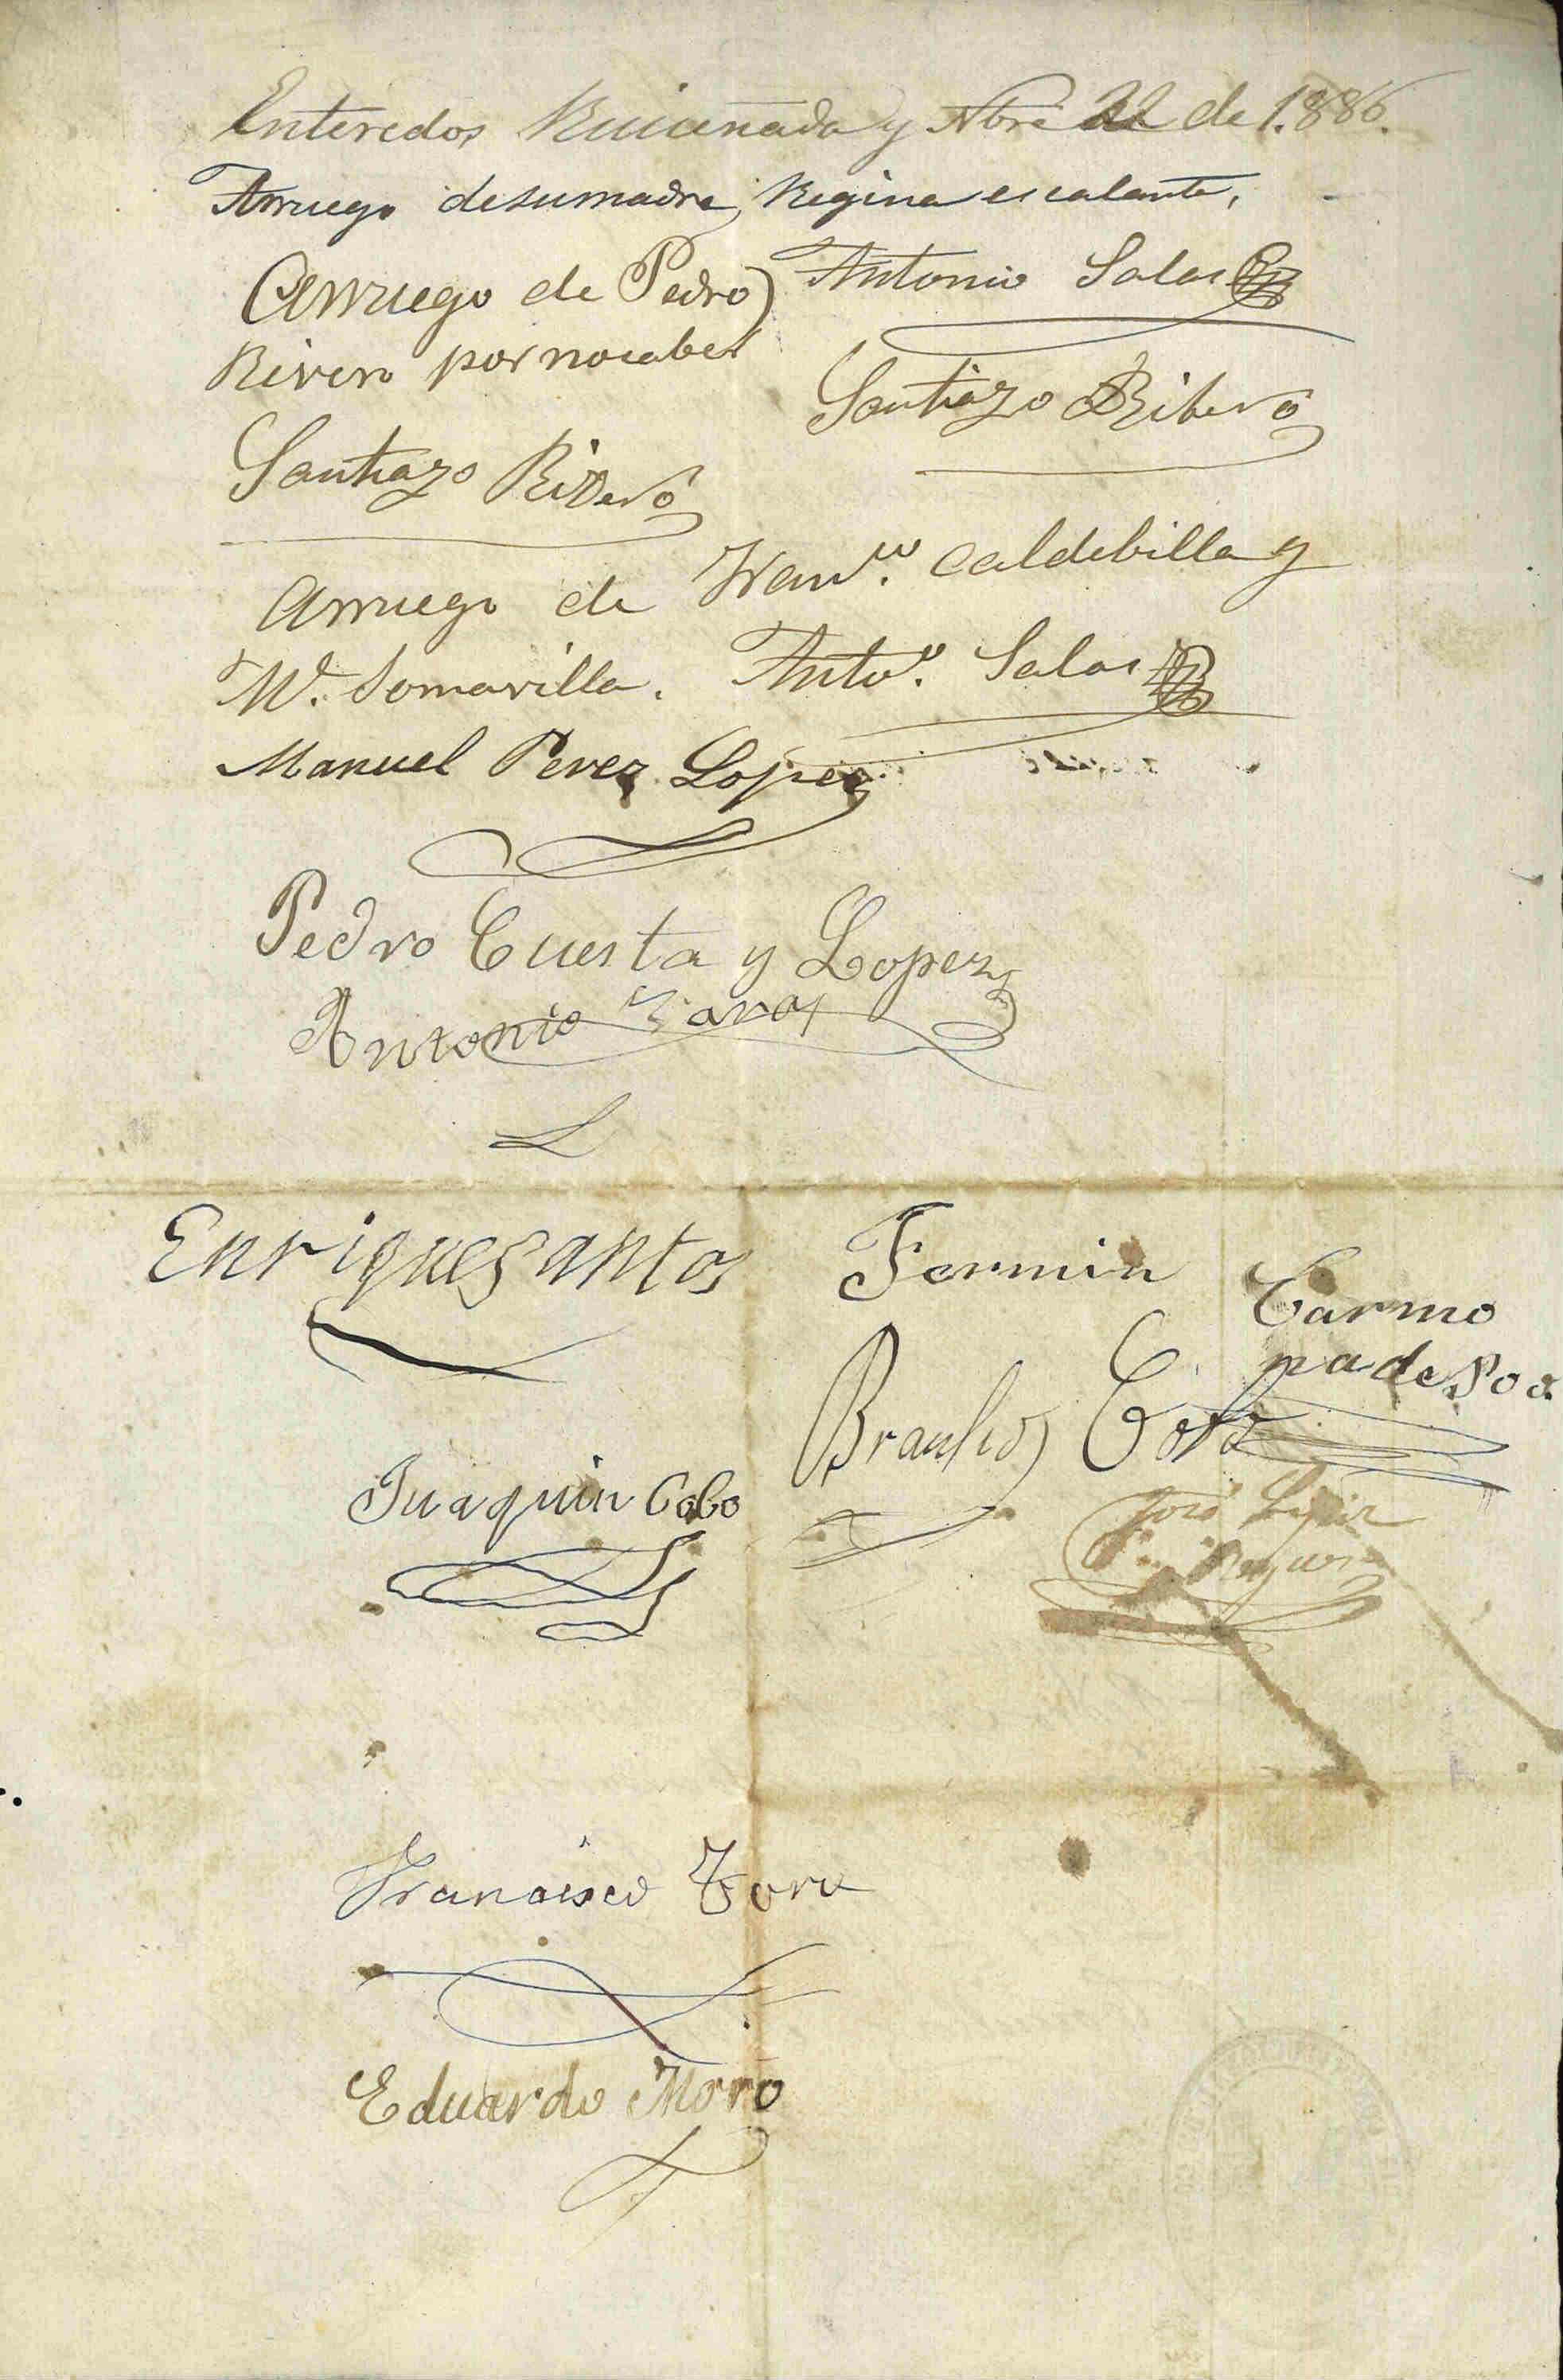 Enteredos Ruiceñada y Nbre 22 de 1.886.
Arruego de su madre, Regina escalante,
Antonio Salas
Arruego de Pedro)
Rivero por no caber
Santiago Ribero
Santiago Ribero
Arruego de Franco. Caldebilla y
Ml. Somavilla. Anto. Salas
Manuel Perez Lopez
Pedro Cuesta y Lopez
Antonio Zara
Enrique santos
Fermin Carmo
na de Poo
Braulio Coto
Juaquin Cobo
José
Francisco Tora
Eduardo Moro